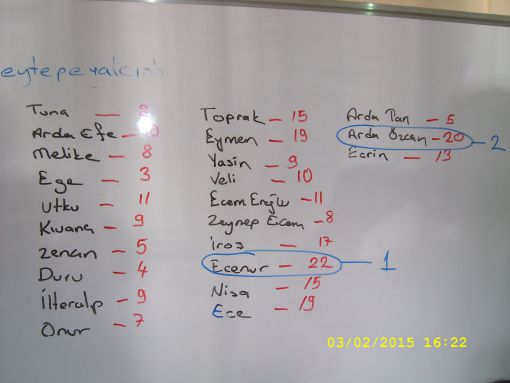 eytepe
Tuna —
Arda Efe —
Melike — 8
Ege — 3
Utku — 11
Kıvanç — 9
Zenan — 5
Duru — 4
İlteralp — 9
Onur — 7
Toprak — 15
Eymen — 19
Yasin — 9
Veli — 10
Ecem — 11
Zeynep Ecem — 8
— 17
Ecenur — 22 — 1
Nisa — 15
Ece — 19
Arda Tan — 5
Arda Özcan — 20 — 2
Ecrin — 13
03/02/2015 16:22